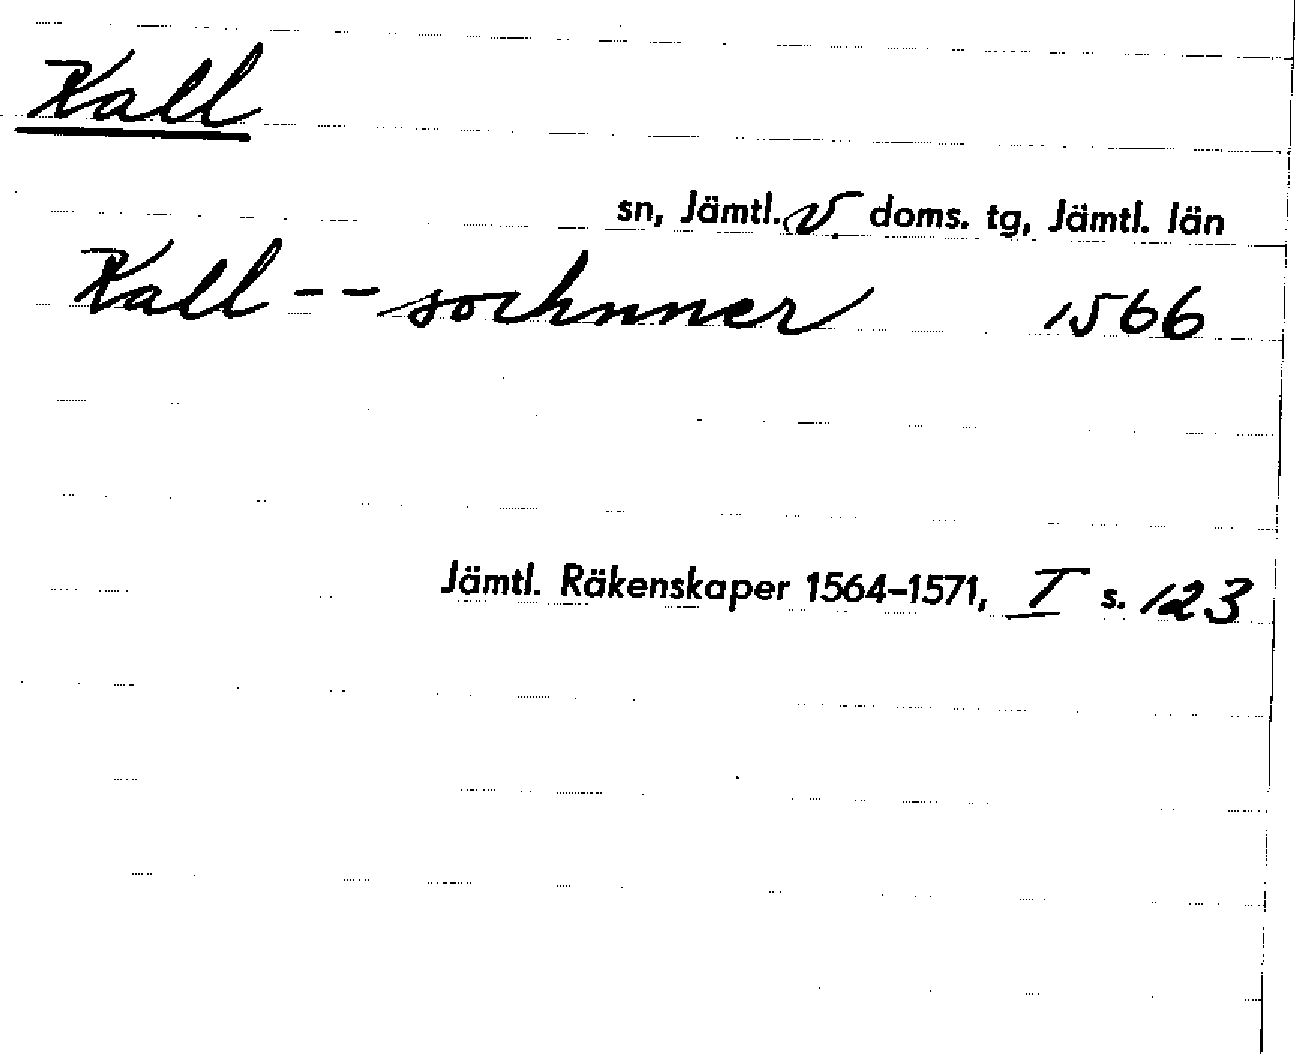 Kall
sn, Jämtl. v. doms. tg, Jämtl. län
Kall -- sochnner 1566
Jämtl. Räkenskaper 1564–1571, I s. 123